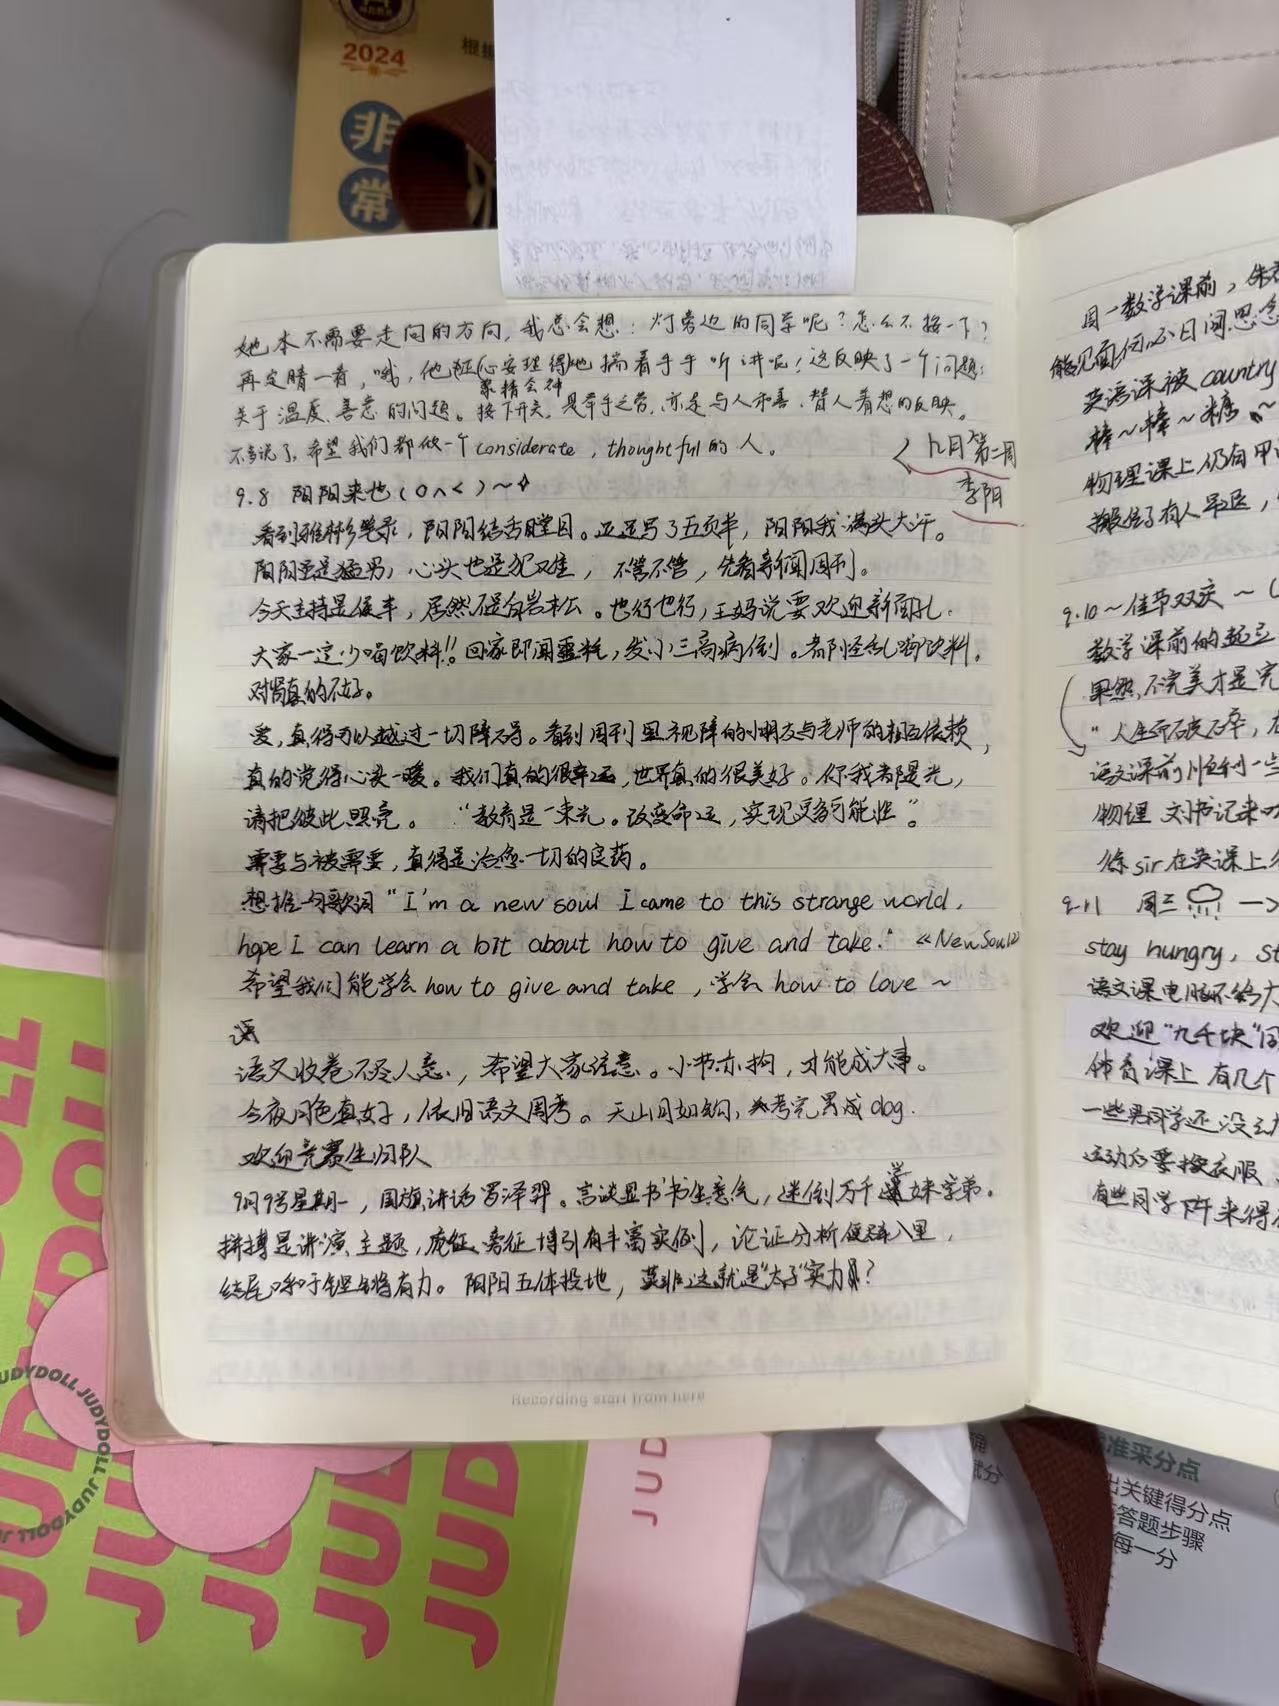 2024
根据
非
常
她本不需要走向的方向,我总会想:灯旁边的同学呢?怎么不按一下?
再定睛一看,哦,他正(心安理得)地揣着手手听讲呢!这反映了一个问题:
聚精会神
关于温度、善意的问题。按下开关,是举手之劳,亦是与人和善、替人着想的反映。
不多说了,希望我们都做一个considerate, thoughtful的人。
九月第二周
李阳
9.8 阳阳来也(O∧<)~
看到雅彬笔录,阳阳结舌瞠目。还是写了五页半,阳阳我满头大汗。
阳阳虽是猛男,心头也是犯难,不管不管,先看新闻周刊。
今天主持是侯丰,居然不是白岩松。也行也行,王妈说要欢迎新面孔.
大家一定少喝饮料!!回家即闻噩耗,发小三高病倒。都怪乱喝饮料。
对肾真的不好。
爱,真得可以越过一切障碍。看到周刊里视障的小朋友与老师的相互依赖,
真的觉得心头一暖。我们真的很幸运,世界真的很美好。你我都是光,
请把彼此照亮。 “教育是一束光。改变命运,实现更多可能性。”
需要与被需要,真得是治愈一切的良药。
想推一句歌词“I'm a new soul I came to this strange world,
hope I can learn a bit about how to give and take.“ 《New Soul》
希望我们能学会how to give and take,学会 how to love ~
语文收卷不尽人意,希望大家注意。小节亦拘,才能成大事。
今夜月色真好,依旧语文周考。天山月如钩,考完累成dog.
欢迎竞赛生归队
9月9号星期一,国旗讲话罗泽羿。言谈显书书生意气,迷倒万千学妹学弟。
拼搏是讲演主题,旁征博引有丰富实例,论证分析
结尾呼吁铿锵有力。阳阳五体投地,莫非这就是“太子”实力?
周一数学课前,朱
能见面何必日闻思念
英语课被 country
棒~棒~糖~
物理课上仍有甲
搬
9.10 ~佳节双庆~(
数学课前的起立
果然,不完美才是完
“人生
语文课前顺利一些
物理 刘书记来
徐sir在英课上
9.11 周三 —>
stay hungry, st
语文课电脑不给力
欢迎“九千块”同
体育课上 有几个
一些男同学还没
运动后要换衣服
有些同学
Recording start from here
JUDYDOLL JUDYDOLL JUDYDOLL
JUDYDOLL
JUD
准采分点
出关键得分点
答题步骤
每一分